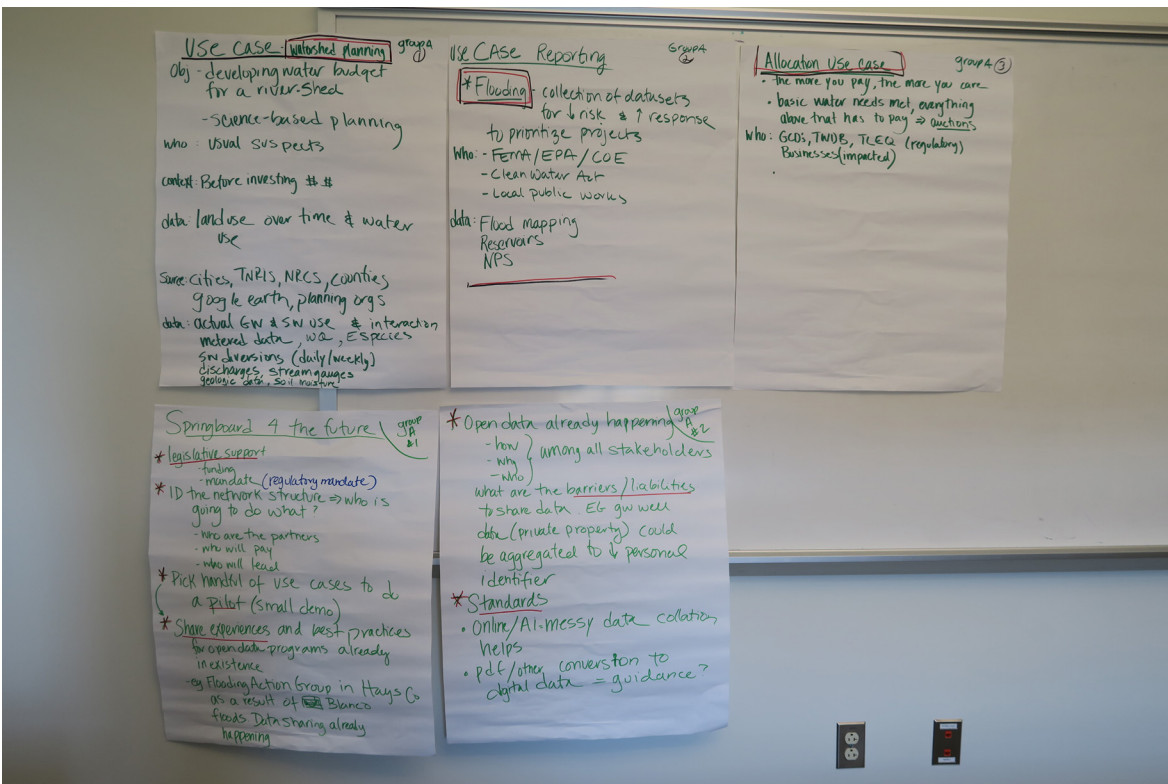 Use Case - watershed planning group A 1
Obj - developing water budget
for a river-shed
- science-based planning
who: usual suspects
context: Before investing $ $
data: landuse over time & water
use
source: cities, TNRIS, NRCS, counties
google earth, planning orgs
data: actual GW & SW use & interaction
metered data, WQ, E Species
SW diversions (daily/weekly)
discharges, streamgauges
geologic data, soil moisture
Use CASE Reporting Group A 2
* Flooding - collection of datasets
for ↓ risk & ↑ response
to prioritize projects
Who: - FEMA/EPA/COE
- Clean Water Act
- Local public works
data: Flood mapping
Reservoirs
NPS
Allocation Use case group A 3
• the more you pay, the more you care
• basic water needs met, everything
above that has to pay ⇒ auctions
who: GCDs, TWDB, TCEQ (regulatory)
Businesses (impacted)
Springboard 4 the future group A &1
* legislative support
- funding
- mandate (regulatory mandate)
* ID the network structure ⇒ who is
going to do what?
- who are the partners
- who will pay
- who will lead
* Pick handful of use cases to do
a pilot (small demo)
* Share experiences and best practices
for open data programs already
in existence
- eg Flooding Action Group in Hays Co
as a result of Blanco
floods. Data sharing already
happening
* Open data already happening group A &2
- how
- why } among all stakeholders
- who
what are the barriers/liabilities
to share data. EG gw well
data (private property) could
be aggregated to ↓ personal
identifier
* Standards
• Online/AI=messy data collation
helps
• pdf/other conversion to
digital data = guidance?